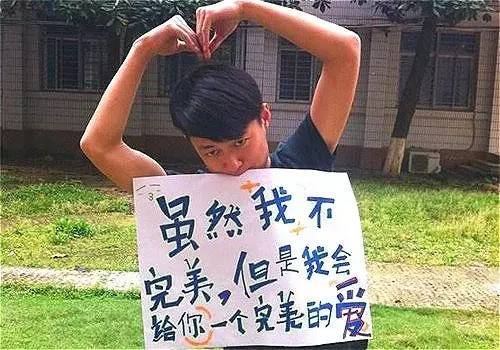 虽然我不
完美,但是我会
给你一个完美的爱